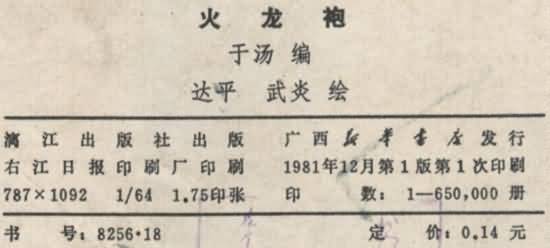 火龙袍
于汤 编
达平 武炎 绘
漓江出版社出版 广西新华书店发行
右江日报印刷厂印刷 1981年12月第1版第1次印刷
787×1092 1/64 1.75印张 印 数：1—650,000 册
书 号：8256·18 定 价：0.14 元